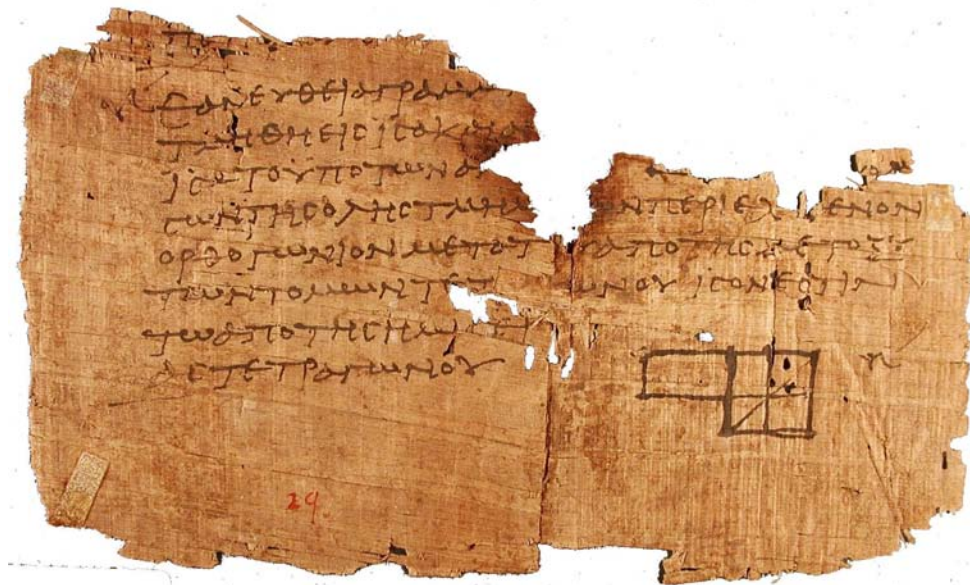 ΕΑΝΕΥΘΕΙΑΓΡΑΜΜ
ΤΜΗΘΗΕΙϹΙϹΑΚΑΙΑ
ΙϹΑΤΟΥΠΟΤΩΝΑ
ΤΩΝΤΗϹΟΛΗϹΤΜΗΜ ΩΝΠΕΡΙΕΧΟΜΕΝΟΝ
ΟΡΘΟΓΩΝΙΟΝΜΕΤΑΤΟΥΑΠΟΤΗϹΜΕΤΟΞΥ
ΤΩΝΤΟΜΩΝΤΕΤ ΩΝΟΥΙϹΟΝΕϹΤΙΝ
ΤΩΑΠΟΤΗϹΗΜΙ
ΔΕΤΕΤΡΑΓΩΝΟΥ
29.